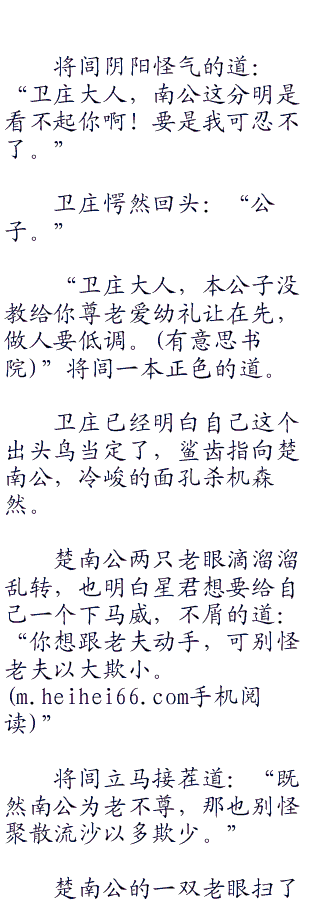 将闾阴阳怪气的道：
“卫庄大人，南公这分明是
看不起你啊！要是我可忍不
了。”
卫庄愕然回头：“公
子。”
“卫庄大人，本公子没
教给你尊老爱幼礼让在先，
做人要低调。(有意思书
院)”将闾一本正色的道。
卫庄已经明白自己这个
出头鸟当定了，鲨齿指向楚
南公，冷峻的面孔杀机森
然。
楚南公两只老眼滴溜溜
乱转，也明白星君想要给自
己一个下马威，不屑的道：
“你想跟老夫动手，可别怪
老夫以大欺小。
(m.heihei66.com手机阅
读)”
将闾立马接茬道：“既
然南公为老不尊，那也别怪
聚散流沙以多欺少。”
楚南公的一双老眼扫了